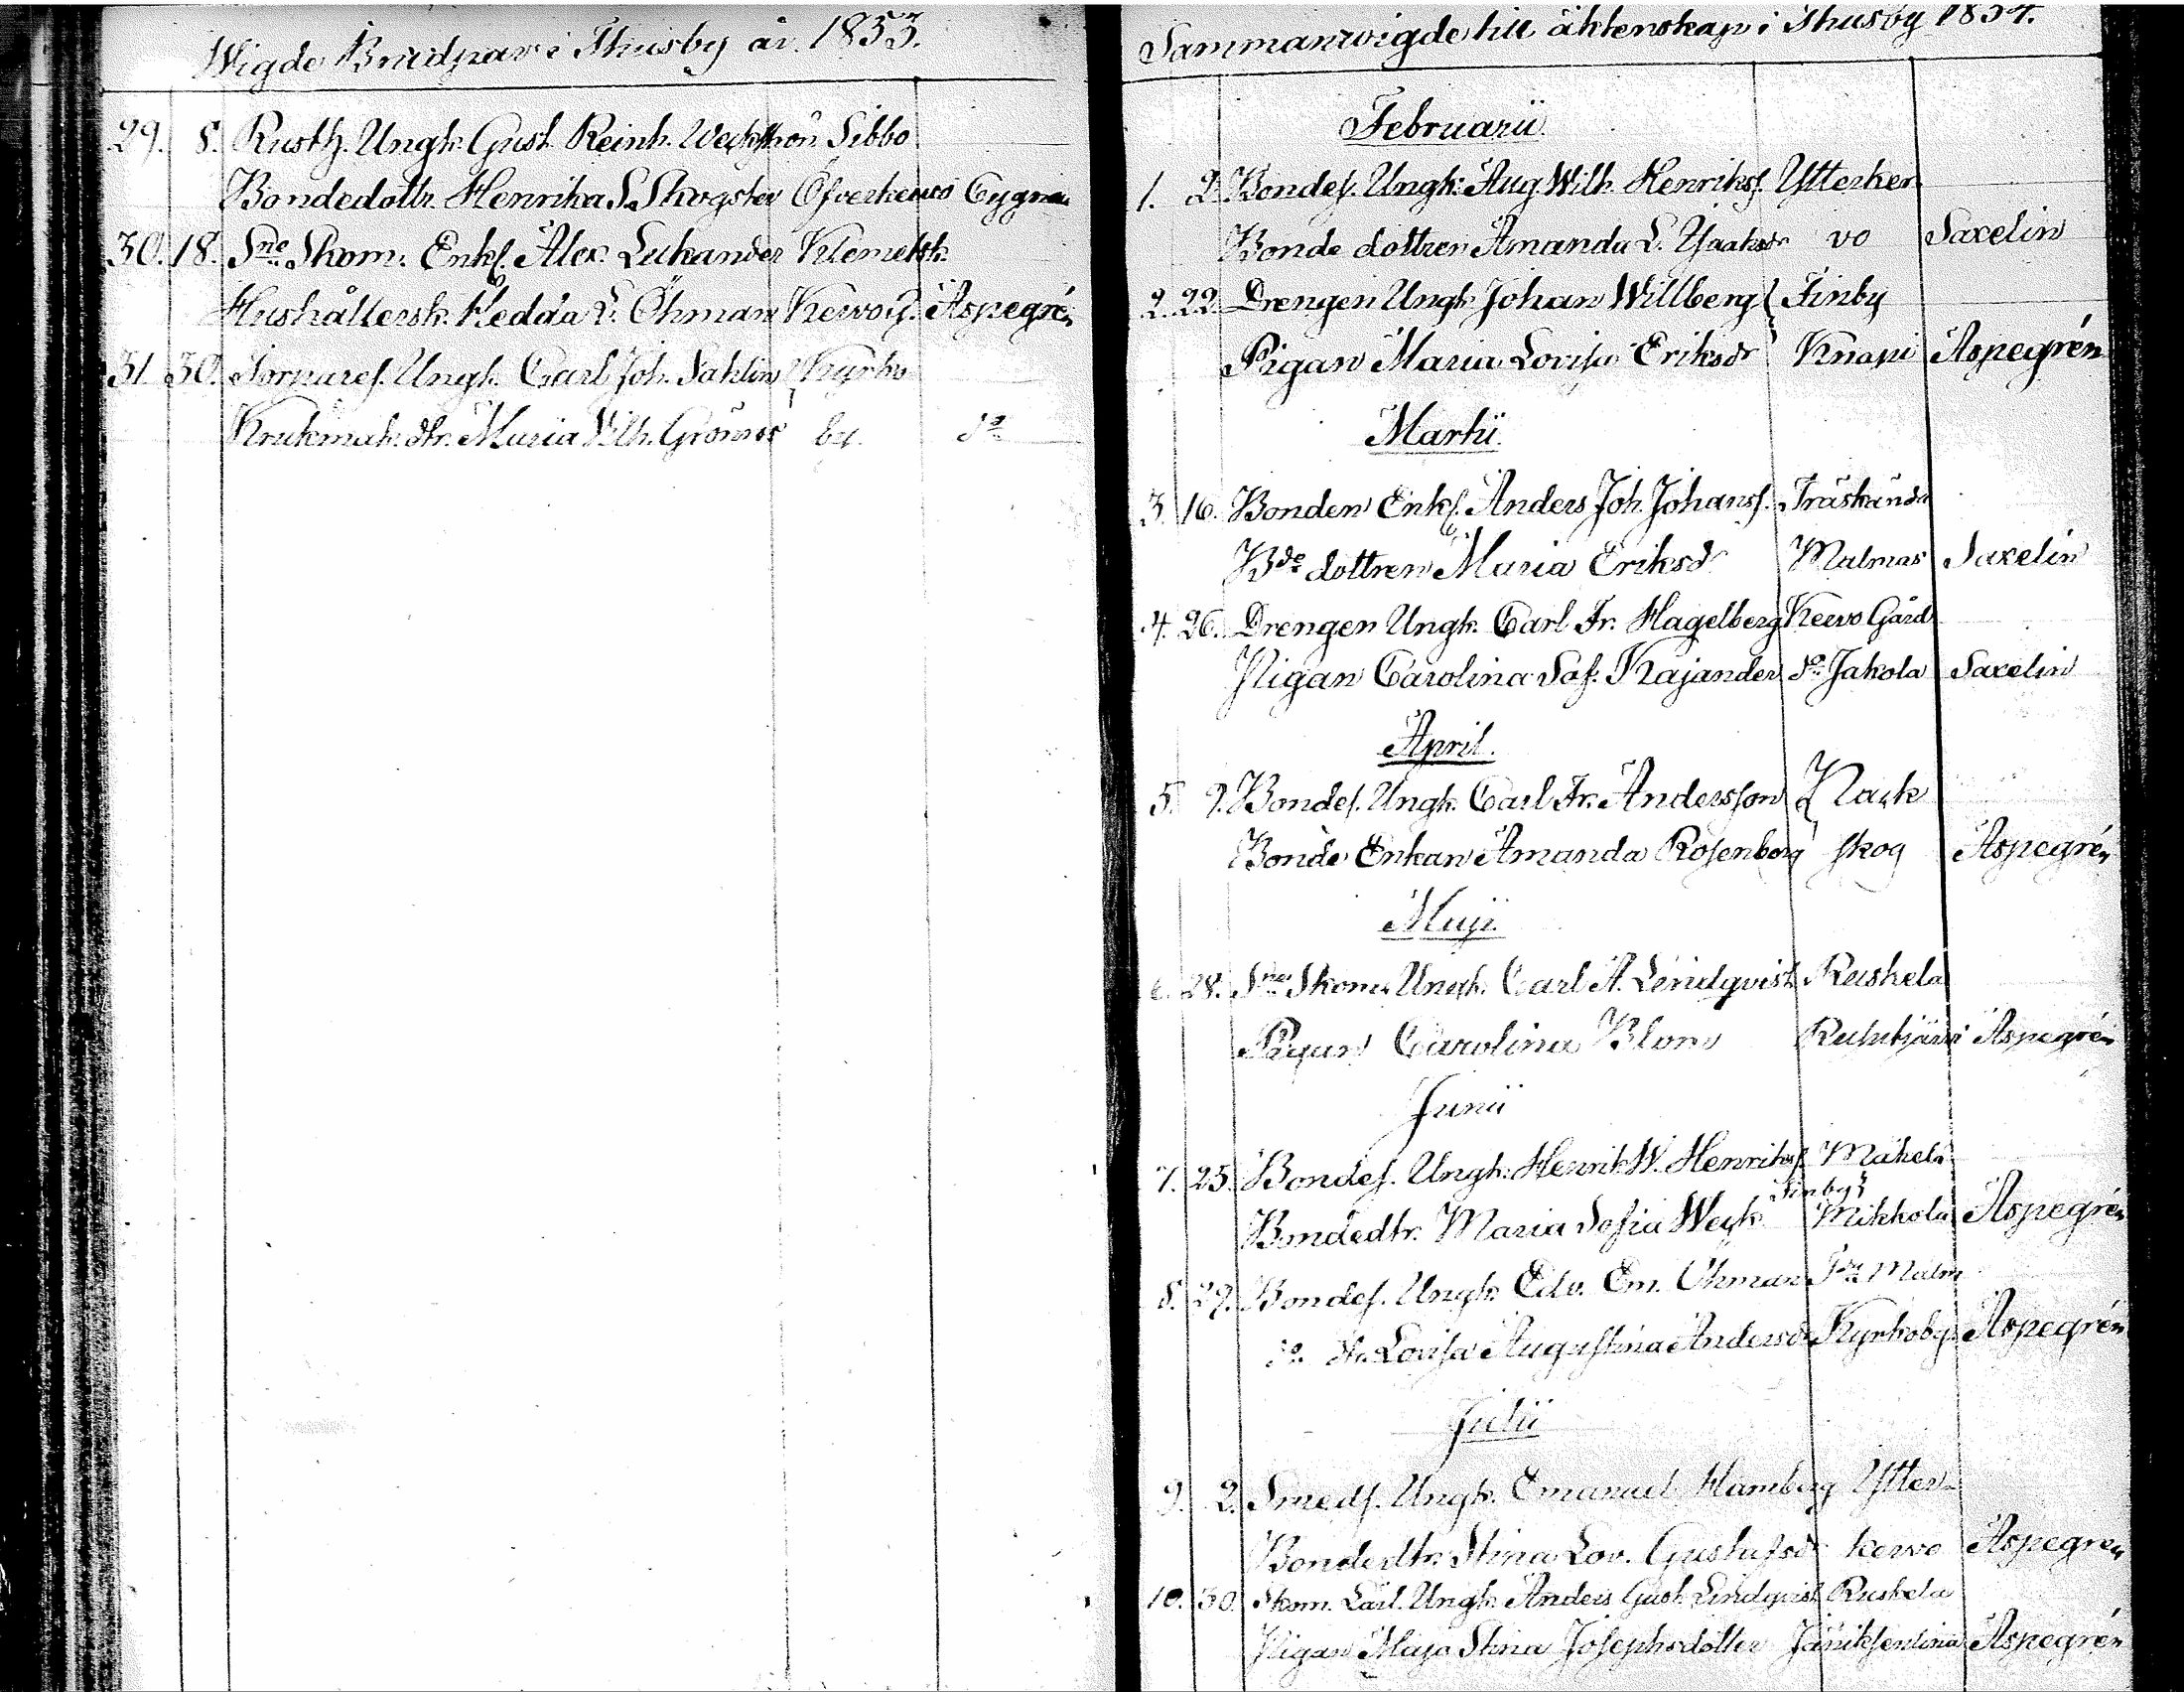 Wigde Brudpar i Thusby år 1853.
29. 8. Rusth. Ungk. Gust. Reinh. Weckström Sibbo
Bondedottr. Henrika S. Skogster Öfverkervo Cygnæus
30. 18. Sne Skom. Enkl. Alex. Lukander Klemetsk.
Hushållersk. Hedda L. Öhman Kervo g. Aspegrén
31 30. Torparef. Ungk. Carl Joh. Sahlin Kyrko
Krukmak. dtr. Maria Wilh. Grönroos by. do
Sammanwigde till äktenskap i Thusby 1854.
Februarii
1. 2. Bondes. Ungk. Aug. Wilh. Henrikss. Ytterker
Bonde dottren Amanda L. vo Saxelin
2. 22. Drengen Ungk. Johan Willberg Finby
Pigan Maria Lovisa Eriksdr Knapi Aspegrén
Martii.
3. 16. Bonden Enkl. Anders Joh. Johanss. Träskända
Bde dottren Maria Eriksdr Malmas Saxelin
4. 26. Drengen Ungk. Carl Fr. Hagelberg Kervo Gård
Pigan Carolina Sof. Kajander do Jakola Saxelin
April.
5. 9. Bondes. Ungk. Carl Fr. Andersson Nack
Bonde Enkan Amanda Rosenberg skog Aspegrén
Maji.
6. 28. Sne Skom. Ungk. Carl A. Lindqvist Ruskela
Pigan Carolina Blom Ruhtjärvi Aspegrén
Junii
7. 25. Bondes. Ungk. Henrik W. Henrikss. Mäkelä
Finby
Bondedtr. Maria Sofia Weck Mikkola Aspegrén
8. 29. Bondes. Ungk. Edv. Em. Öhman Malm
do dtr. Lovisa Augustina Andersdr Kyrkoby Aspegrén
Julii
9. 2. Smeds. Ungk. Emanuel Hamberg Ytter-
Bondedtr. Stina Lov. Gustafsdr kervo Aspegren
10. 30. Skom. Lärl. Ungk. Anders Gust. Lindqvist Ruskela
Pigan Maja Stina Josephsdotter Jäniksenlinna Aspegrén